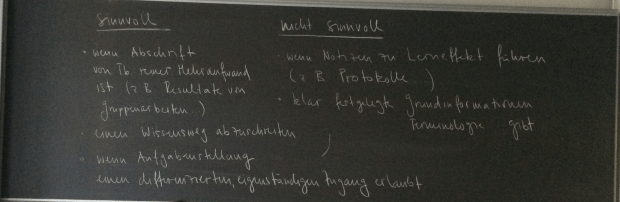 sinnvoll
· wenn Abschrift
von Tb reiner Mehraufwand
ist (z B Resultate von
Gruppenarbeiten...)
· einen Wissensweg abzuschreiten
· wenn Aufgabenstellung
einen differenzierten, eigenständigen Zugang erlaubt
nicht sinnvoll
· wenn Notizen zu Lerneffekt führen
(z B Protokolle...)
· klar festgelegte Grundinformationen
Terminologie gibt